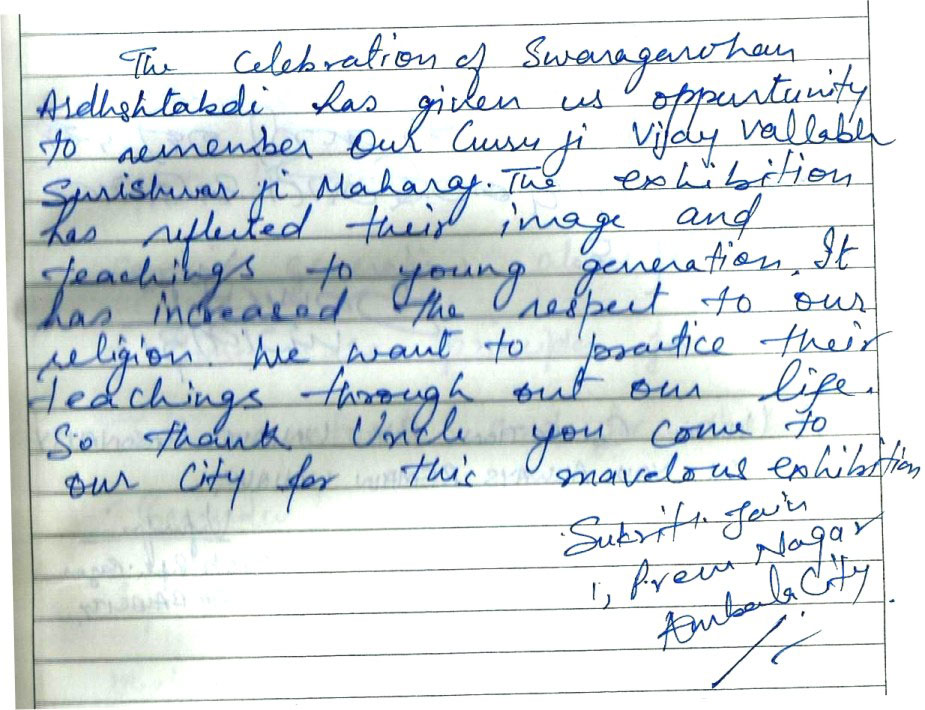 The Celebration of Swaragarohan
Ardhshtabdi has given us oppurtunity
to remember our Guru ji Vijay Vallabh
Surishwar ji Maharaj. The exhibition
has reflected their image and
teachings to young generation. It
has increased the respect to our
religion. We want to practice their
teachings through out our life.
So thank Uncle you come to
our City for this mavelous exhibition
Sukriti Jain
1, Prem Nagar
Ambala City.